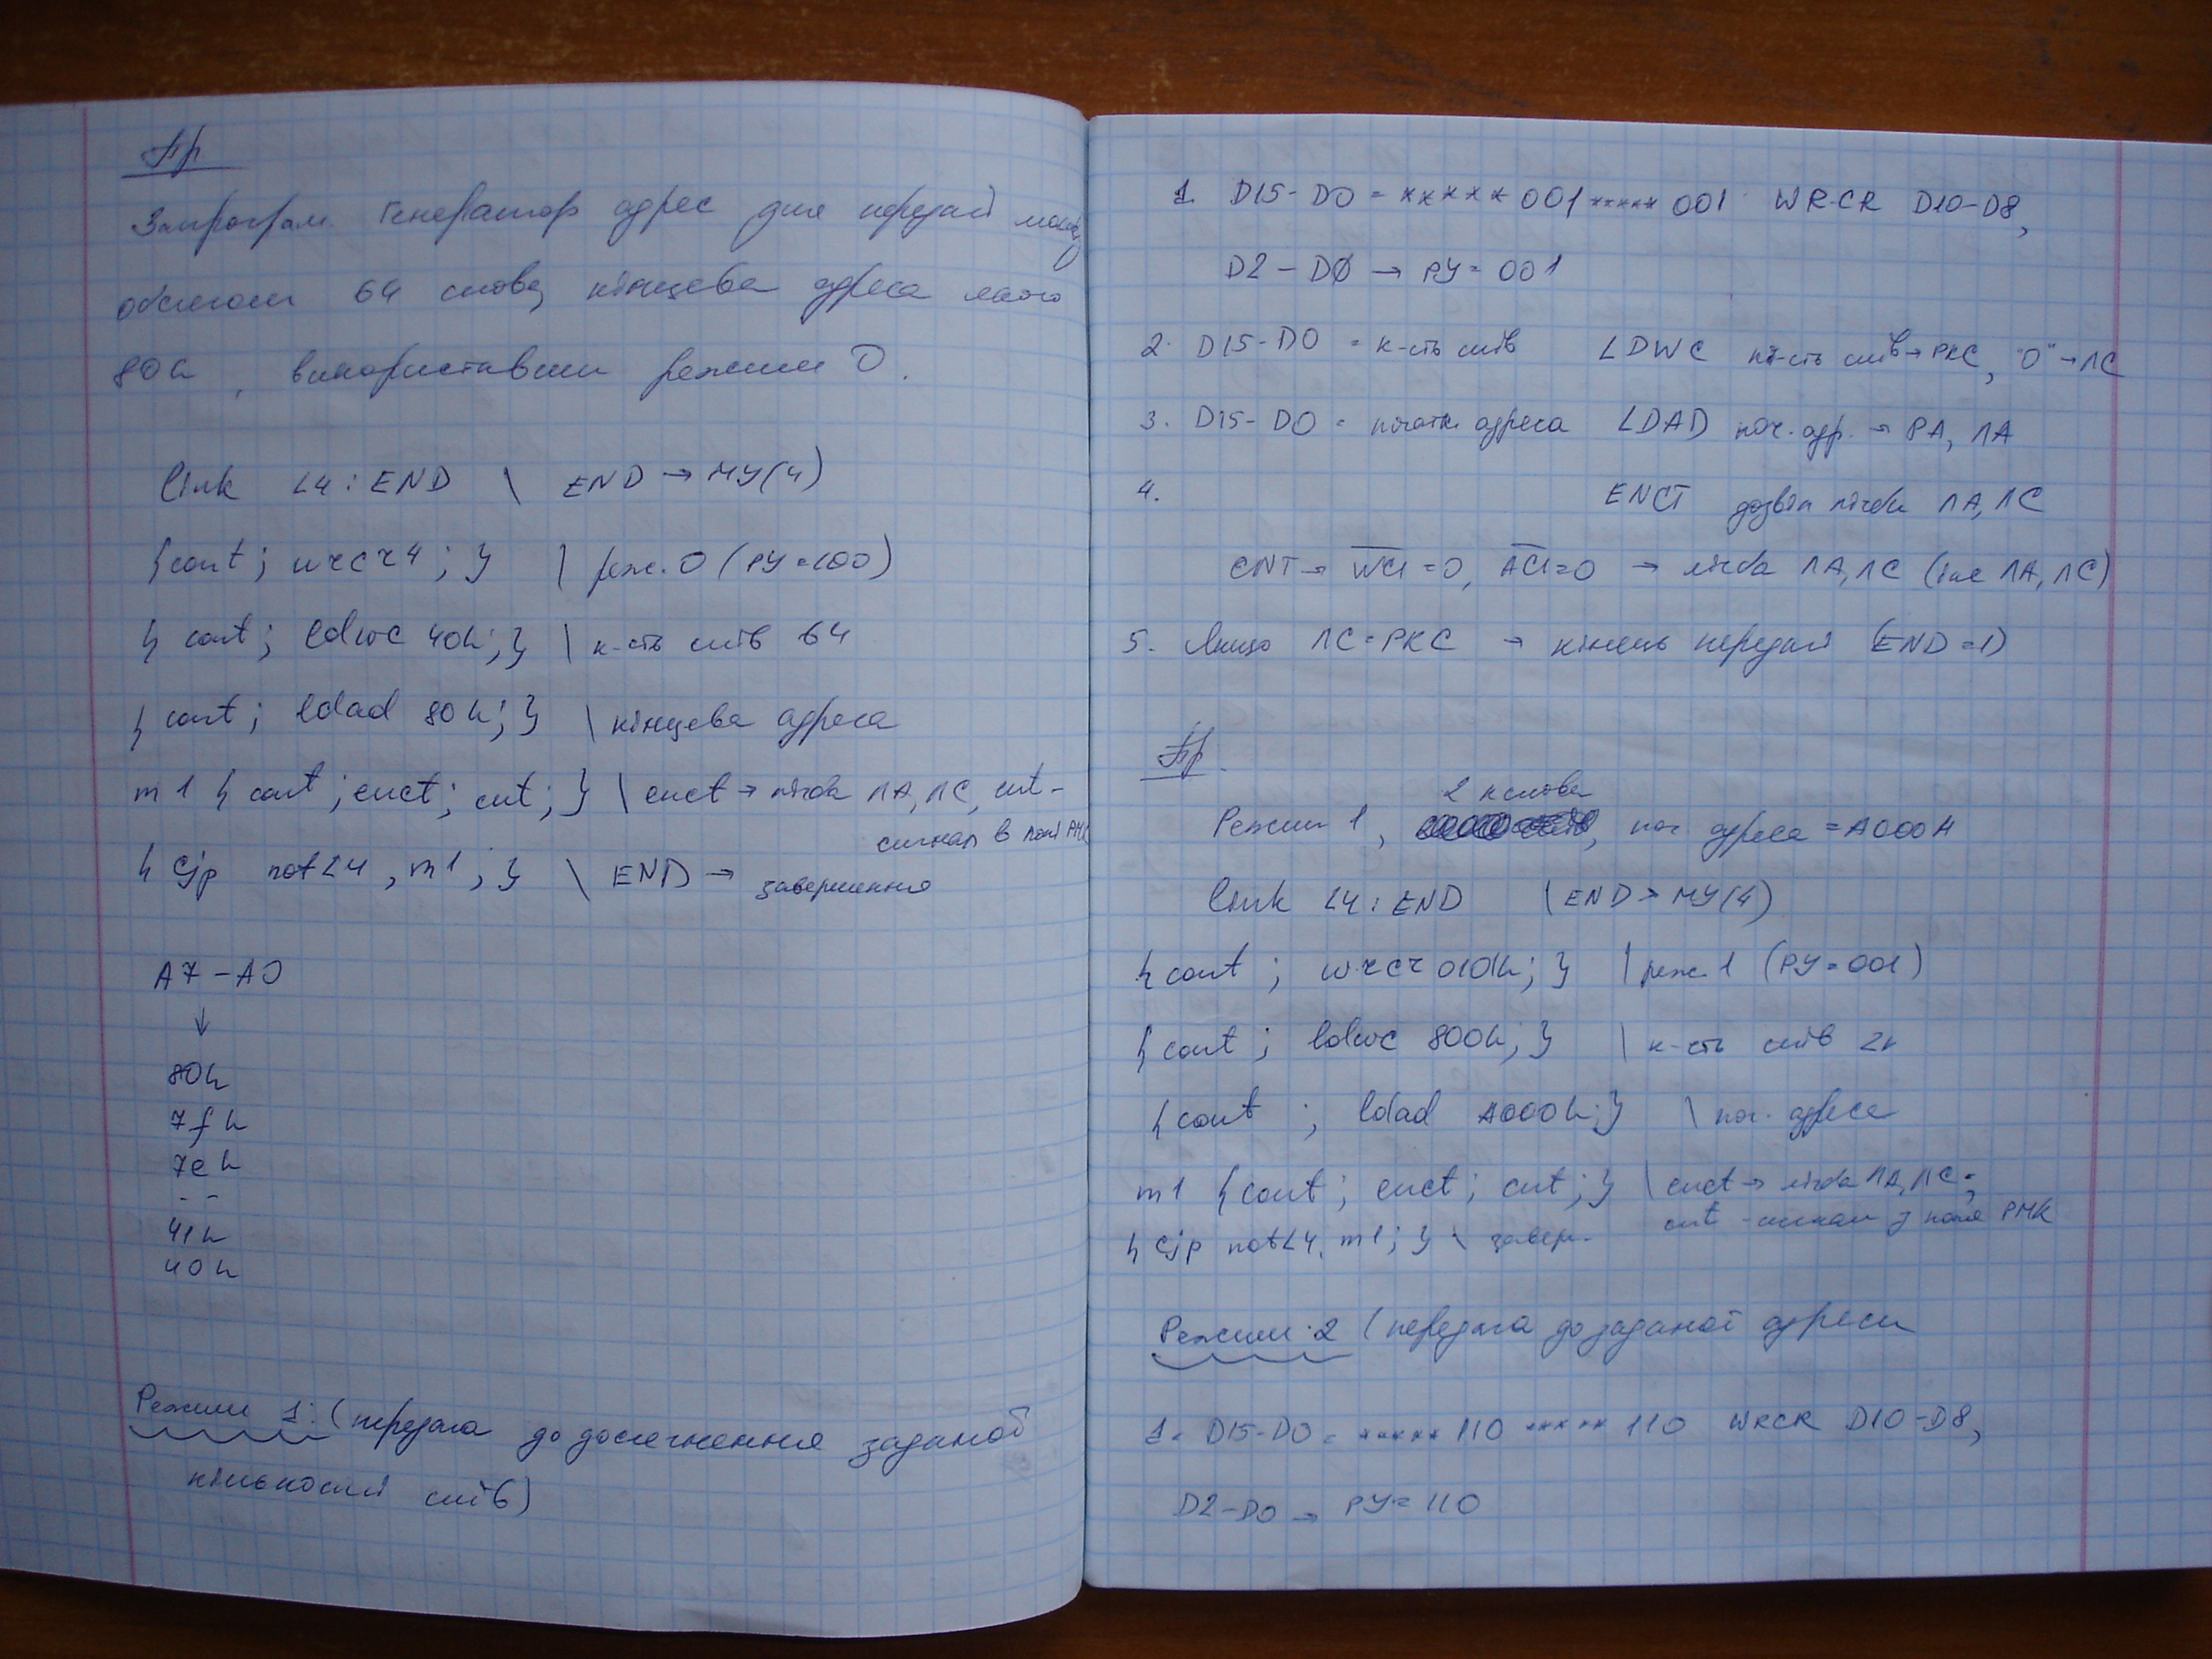 Пр
Запрограм. Генератор адрес для передачі масиву
обсягом 64 слова, кінцева адреса якого
80h, використавши режим 0.
link L4: END \ END → МУ(4)
{cont; wrcr 4; } \ реж. 0 (РУ=100)
{ cont; ldwc 40h; } \ к-сть слів 64
{ cont; ldad 80h; } \ кінцева адреса
m1 { cont; enct; cnt; } \ enct → лічба ЛА, ЛС, cnt -
сигнал в полі РМК
{ cjp not L4, m1; } \ END → завершення
A7 - A0
↓
80h
7fh
7eh
- -
41h
40h
Режим 1: (передача до досягнення заданої
кількості слів)
1. D15-D0 = *****001*****001 WRCR D10-D8,
D2-D0 → РУ=001
2. D15-D0 = к-сть слів LDWC к-сть слів → РКС, "0" → ЛС
3. D15-D0 = початк. адреса LDAD поч. адр. → РА, ЛА
4. ENCT дозвіл лічби ЛА, ЛС
CNT → W̅C̅I̅=0, A̅C̅I̅=0 → лічба ЛА, ЛС (inc ЛА, ЛС)
5. Якщо ЛС=РКС → кінець передачі (END=1)
Пр.
2 к слова
Режим 1, поч адреса = A000H
link L4: END \ END → МУ(4)
{cont; wrcr 0101h; } \ реж. 1 (РУ=001)
{cont; ldwc 800h; } \ к-сть слів 2к
{cont ; ldad A000h;} \ поч. адреса
m1 {cont; enct; cnt; } \ enct → лічба ЛА, ЛС;
cnt - сигнал з поля РМК
{ cjp not L4, m1; } \ завер.
Режим 2 (передача до заданої адреси
1. D15-D0 = *****110 *****110 WRCR D10-D8,
D2-D0 → РУ=110